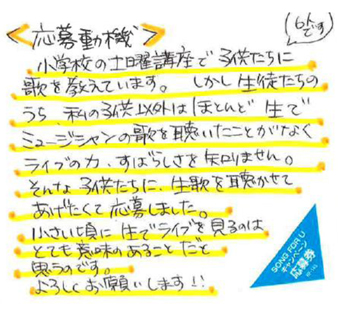 <応募動機>
(6才です)
小学校の土曜講座で子供たちに
歌を教えています。しかし生徒たちの
うち、私の子供以外はほとんど生で
ミュージシャンの歌を聴いたことがなく
ライブの力、すばらしさを知りません。
そんな子供たちに、生歌を聴かせて
あげたくて応募しました。
小さい頃に生でライブを見るのは
とても意味のあることだと
思うのです。
よろしくお願いします!!
SONG FOR U
キャンペーン
応募券